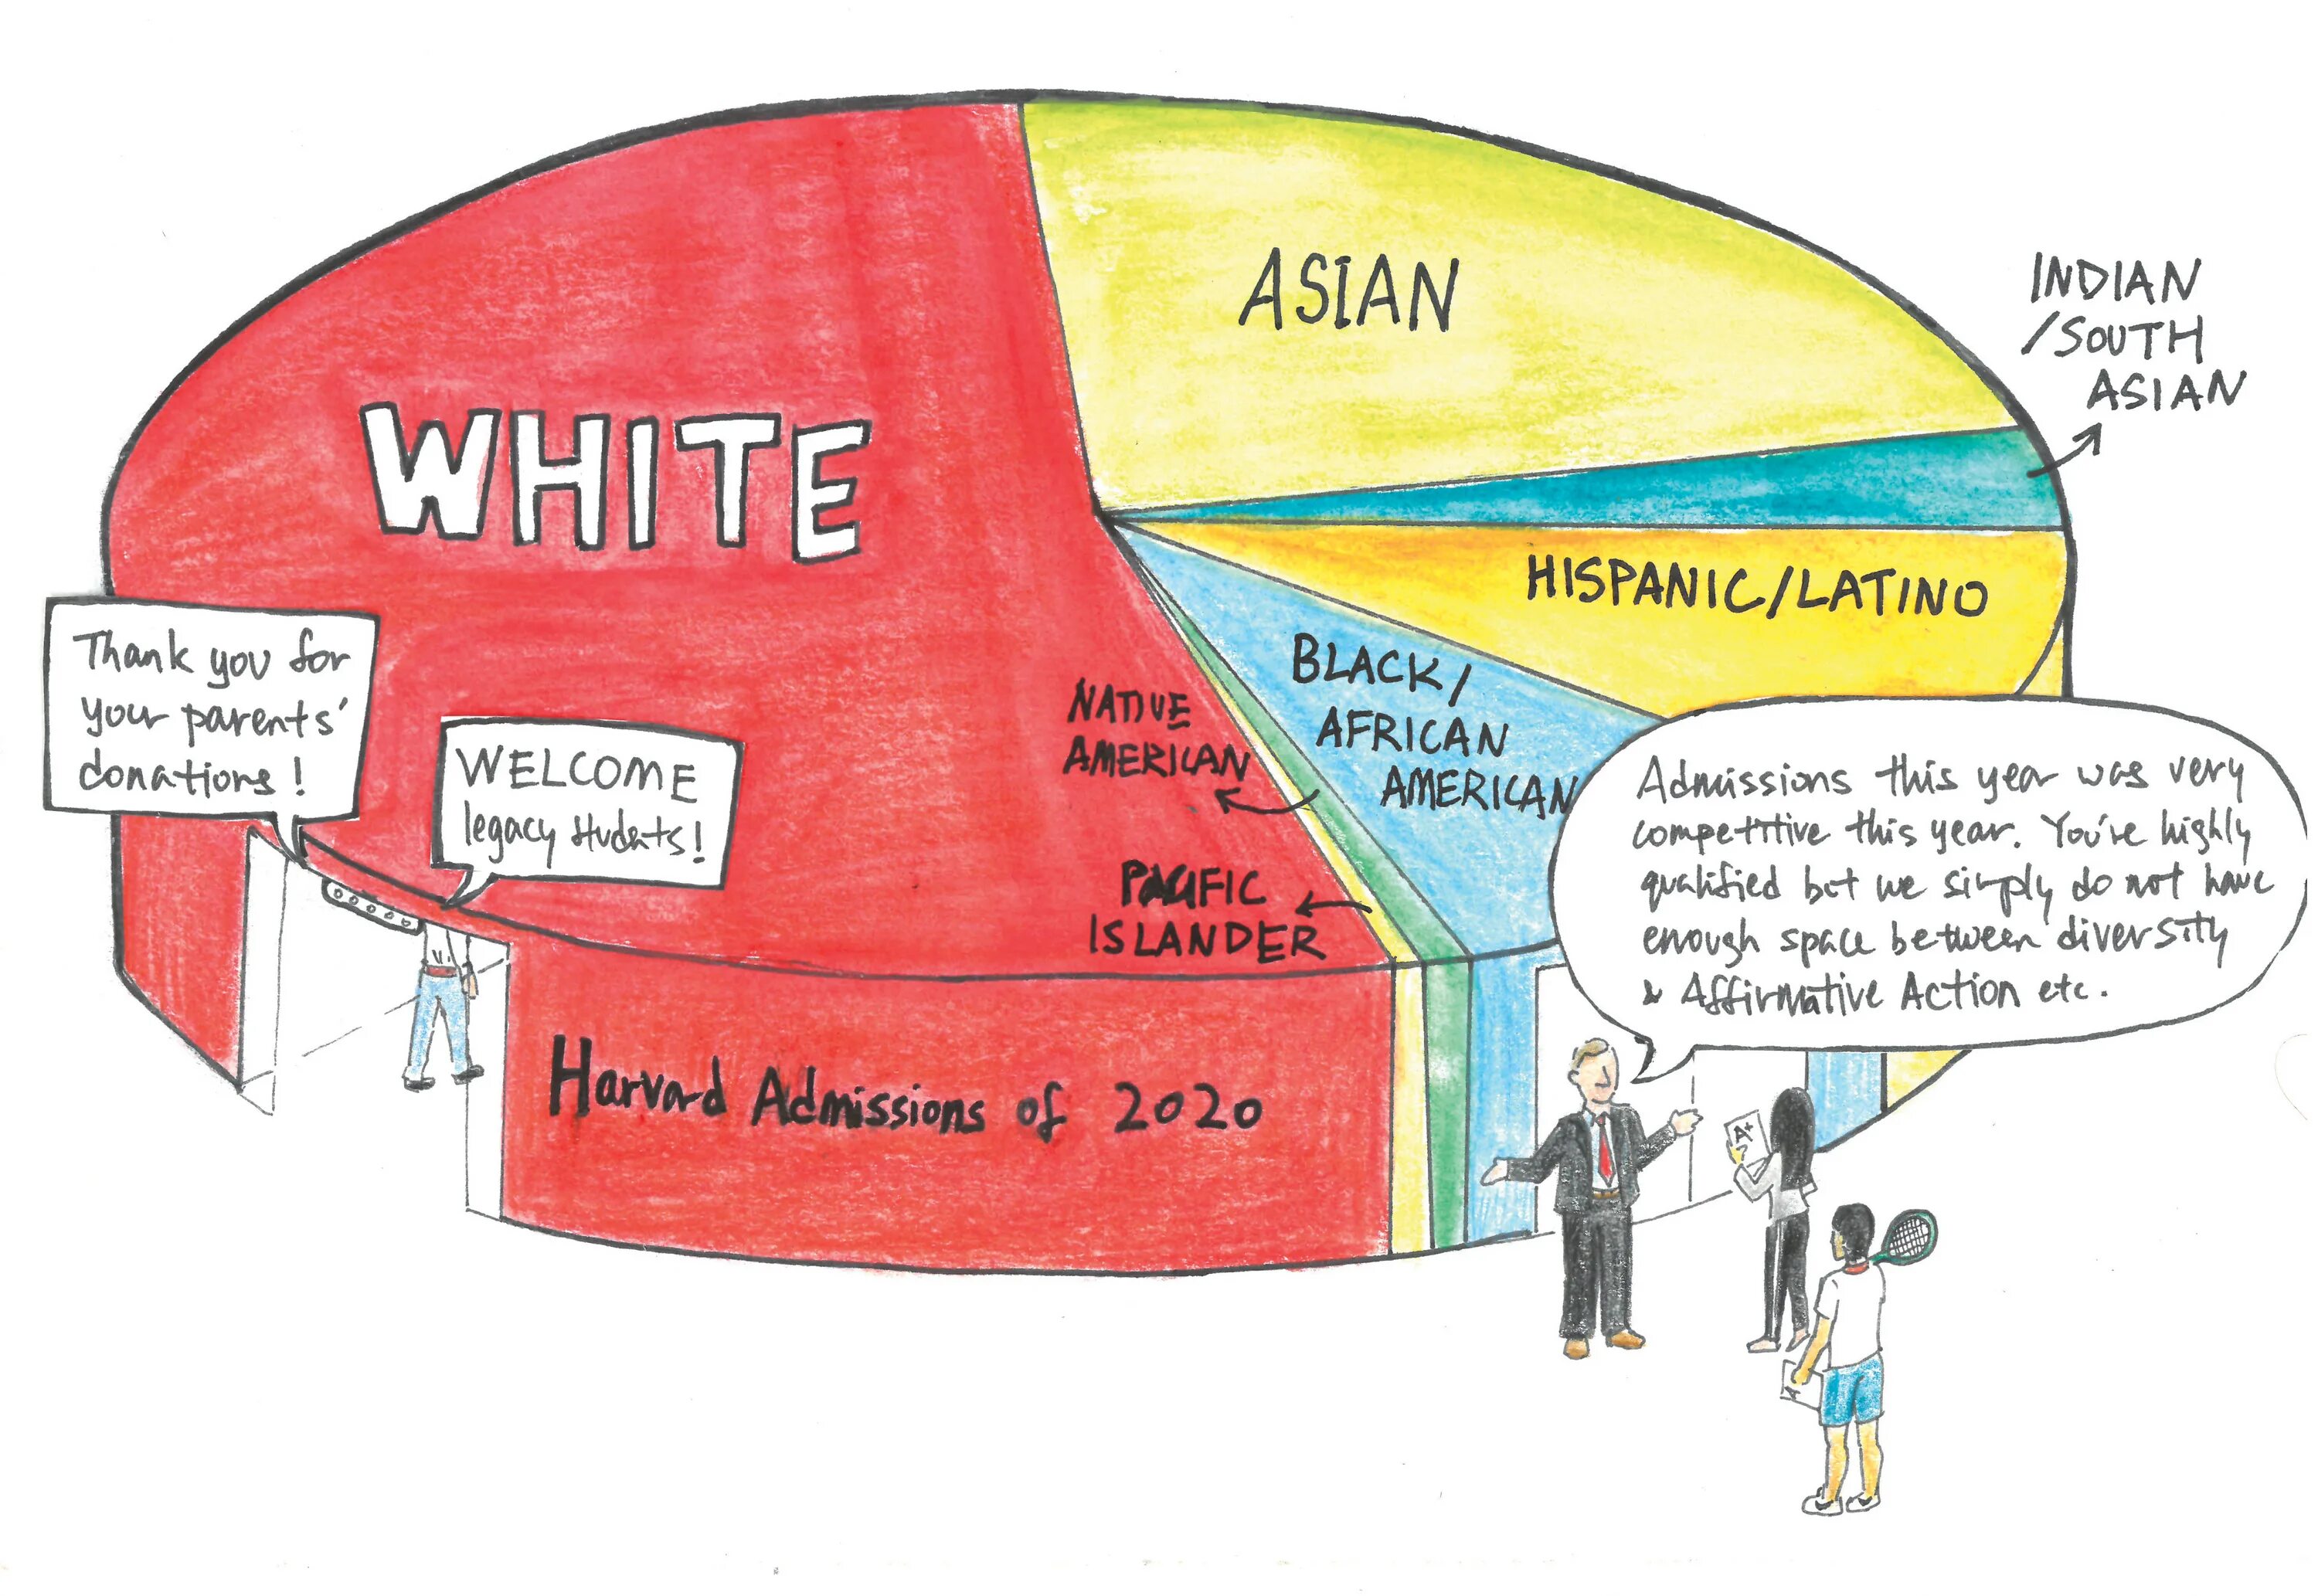 WHITE
ASIAN
INDIAN
/SOUTH
ASIAN
HISPANIC/LATINO
BLACK/
AFRICAN
AMERICAN
NATIVE
AMERICAN
PACIFIC
ISLANDER
Thank you for
your parents'
donations!
WELCOME
legacy students!
Harvard Admissions of 2020
Admissions this year was very
competitive this year. You're highly
qualified but we simply do not have
enough space between diversity
& Affirmative Action etc.
A+
A